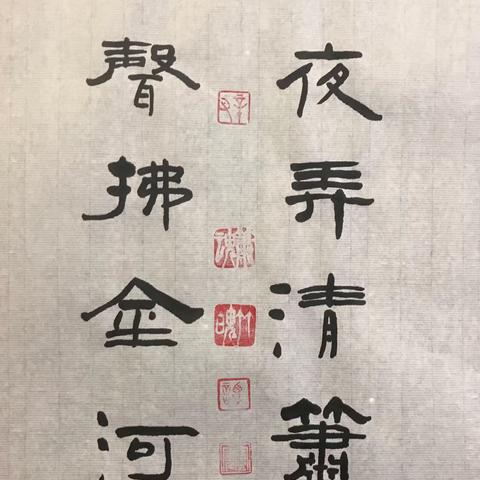 夜弄清簫
聲拂金河